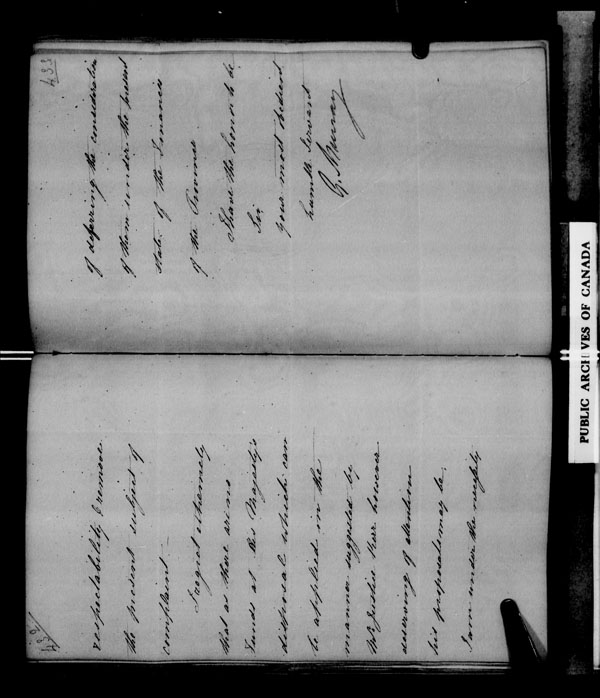 432
respectability & remove
the present subject of
complaint —
I regret extremely
that as there are no
Funds at His Majesty's
disposal which can
be applied in the
manner suggested by
Mr Justice Kerr however
deserving of attention
his proposals may be,
I am under the necessity
433
of deferring the consideration
of them under the present
state of the Finances
of the Province
I have the honor to be
Sir
your most obedient
humble Servant
G. Murray
PUBLIC ARCHIVES OF CANADA